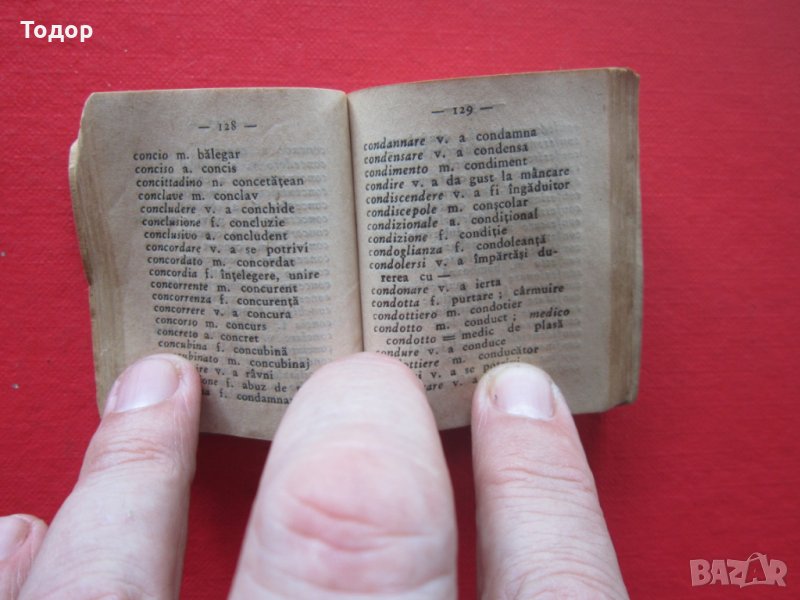 Todor
— 128 —
concio m. bălegar
conciso a. concis
concittadino n. concetățean
conclave m. conclav
concludere v. a conchide
conclusione f. concluzie
conclusivo a. concludent
concordare v. a se potrivi
concordato m. concordat
concordia f. înțelegere, unire
concorrente m. concurent
concorrenza f. concurență
concorrere v. a concura
concorso m. concurs
concreto a. concret
concubina f. concubină
m. concubinaj
v. a râvni
f. abuz de
f.
— 129 —
condannare v. a condamna
condensare v. a condensa
condimento m. condiment
condire v. a da gust la mâncare
condiscendere v. a fi îngăduitor
condiscepole m. conșcolar
condizionale a. condițional
condizione f. condiție
condoglianza f. condoleanță
condolersi v. a împărtăși du-
rerea cu —
condonare v. a ierta
condotta f. purtare; cârmuire
condottiero m. condotier
condotto m. conduct; medico
condotto = medic de plasă
v. a conduce
m. conducător
v. a se
v. a
BAZAR